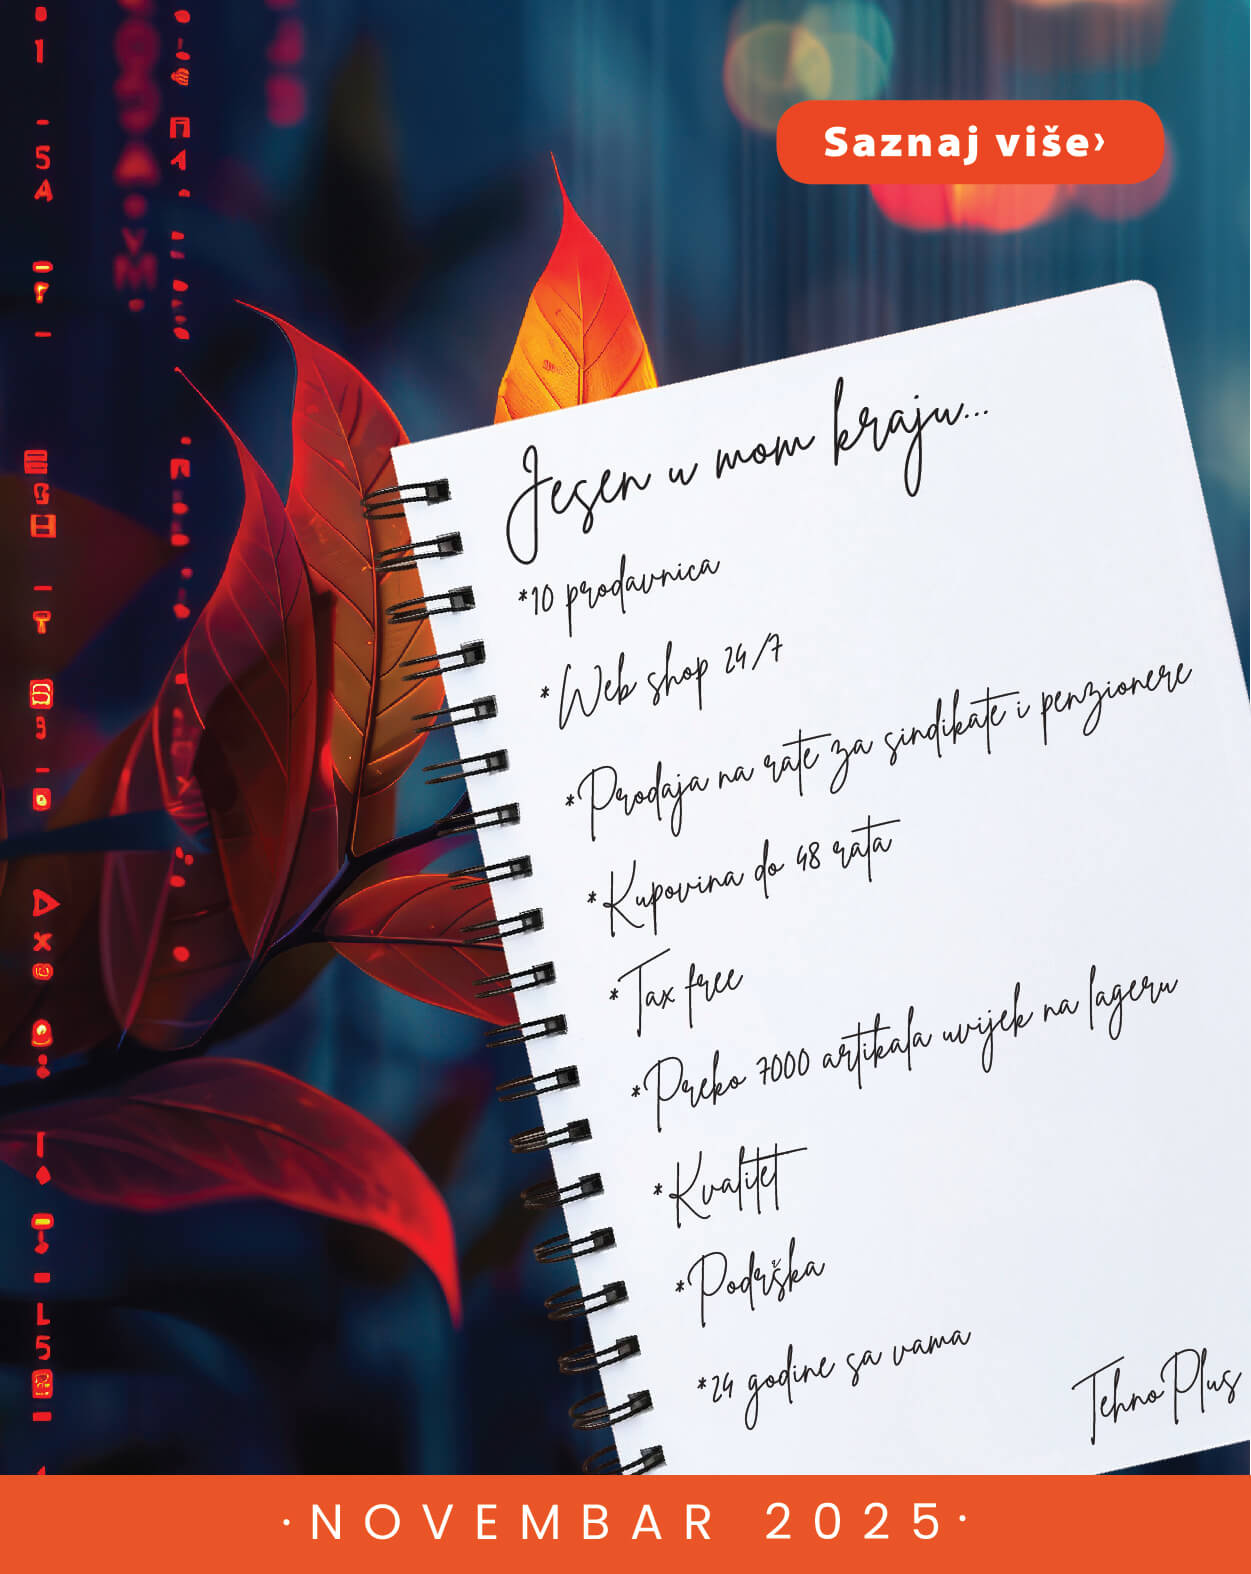 Saznaj više›
Jesen u mom kraju...
*10 prodavnica
*Web shop 24/7
*Prodaja na rate za sindikate i penzionere
*Kupovina do 48 rata
*Tax free
*Preko 7000 artikala uvijek na lageru
*Kvalitet
*Podrška
*24 godine sa vama
TehnoPlus
·NOVEMBAR 2025·